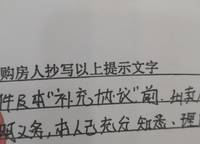 购房人抄写以上提示文字
件及本"补充协议"前,出卖人
明义务,本人已充分知悉、理